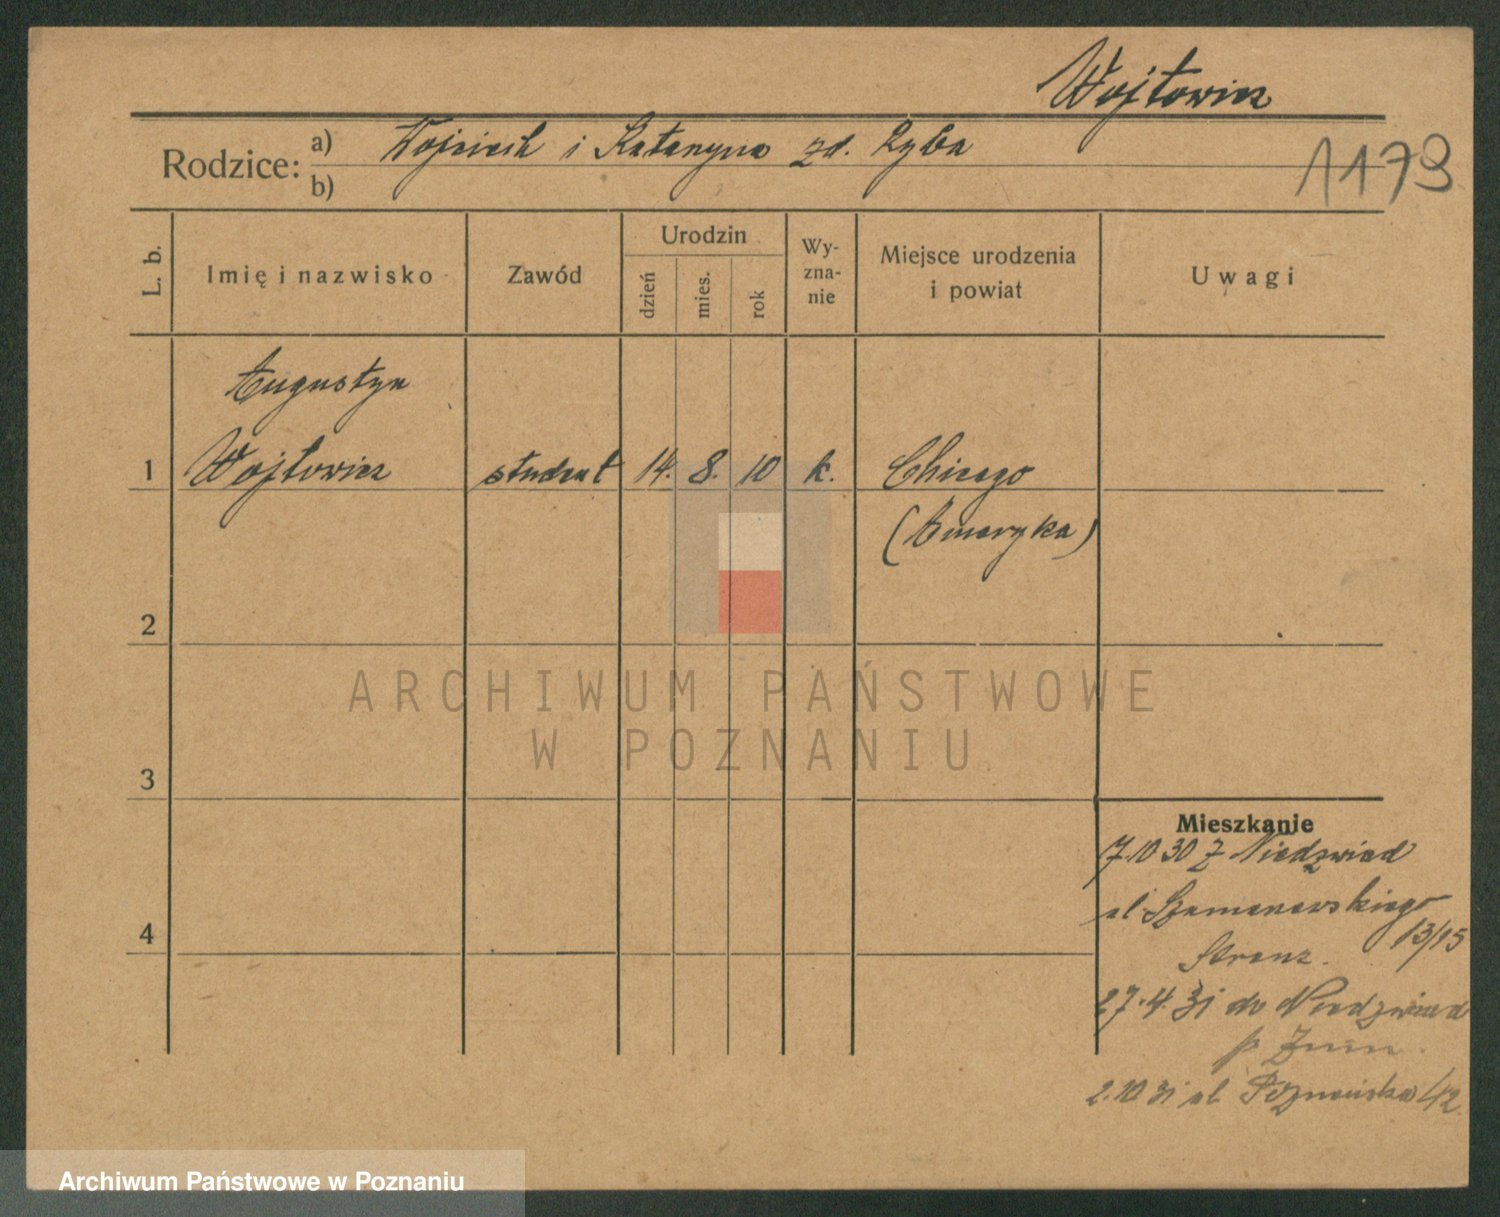 Wojtowicz
Rodzice: a) Wojciech i Katarzyna zd. Ryba
b)
1173
L. b.
Imię i nazwisko
Zawód
Urodzin
dzień
mies.
rok
Wy-
zna-
nie
Miejsce urodzenia
i powiat
Uwagi
Augustyn
1 Wojtowicz student 14. 8. 10 k. Chicago
(Ameryka)
2
3
4
Mieszkanie
7.10 30 z Niedzwiad
ul. Szamarzewskiego
13/15
27.4.31 do Niedzwiad
p Żnin.
2.10 31 ul. Poznańska 42
ARCHIWUM PAŃSTWOWE
W POZNANIU
Archiwum Państwowe w Poznaniu